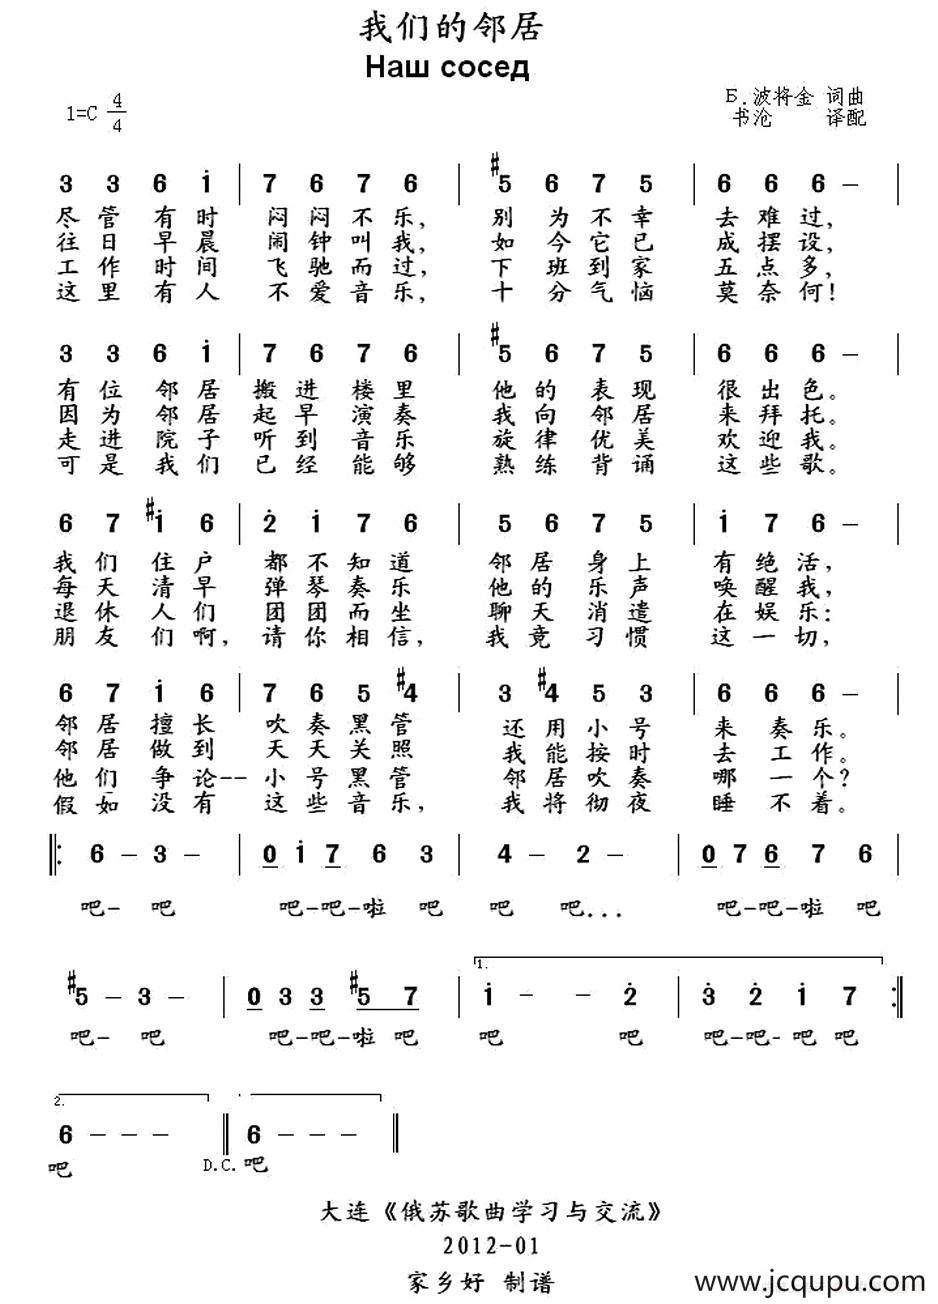 我们的邻居
Наш сосед
1=C 4/4
Б.波将金 词曲
书沧 译配
3 3 6 i | 7 6 7 6 | #5 6 7 5 | 6 6 6 – |
尽管有时 闷闷不乐, 别为不幸 去难过,
往日早晨 闹钟叫我, 如今它已 成摆设,
工作时间 飞驰而过, 下班到家 五点多,
这里有人 不爱音乐, 十分气恼 莫奈何!
3 3 6 i | 7 6 7 6 | #5 6 7 5 | 6 6 6 – |
有位邻居 搬进楼里 他的表现 很出色。
因为邻居 起早演奏 我向邻居 来拜托。
走进院子 听到音乐 旋律优美 欢迎我。
可是我们 已经能够 熟练背诵 这些歌。
6 7 #i 6 | 2 i 7 6 | 5 6 7 5 | i 7 6 – |
我们住户 都不知道 邻居身上 有绝活,
每天清早 弹琴奏乐 他的乐声 唤醒我,
退休人们 团团而坐 聊天消遣 在娱乐:
朋友们啊, 请你相信, 我竟习惯 这一切,
6 7 i 6 | 7 6 5 #4 | 3 #4 5 3 | 6 6 6 – |
邻居擅长 吹奏黑管 还用小号 来奏乐。
邻居做到 天天关照 我能按时 去工作。
他们争论-- 小号黑管 邻居吹奏 哪一个?
假如没有 这些音乐, 我将彻夜 睡不着。
‖: 6 – 3 – | 0 i 7 6 3 | 4 – 2 – | 0 7 6 7 6 |
吧- 吧 吧-吧-啦 吧 吧 吧... 吧-吧-啦 吧
1.
#5 – 3 – | 0 3 3 #5 7 | i – – 2 | 3 2 i 7 :‖
吧- 吧 吧-吧-啦 吧 吧 吧 吧-吧- 吧 吧
2.
6 – – – ‖ 6 – – – ‖
吧 D.C. 吧
大连《俄苏歌曲学习与交流》
2012-01
家乡好 制谱
www.jcqupu.com